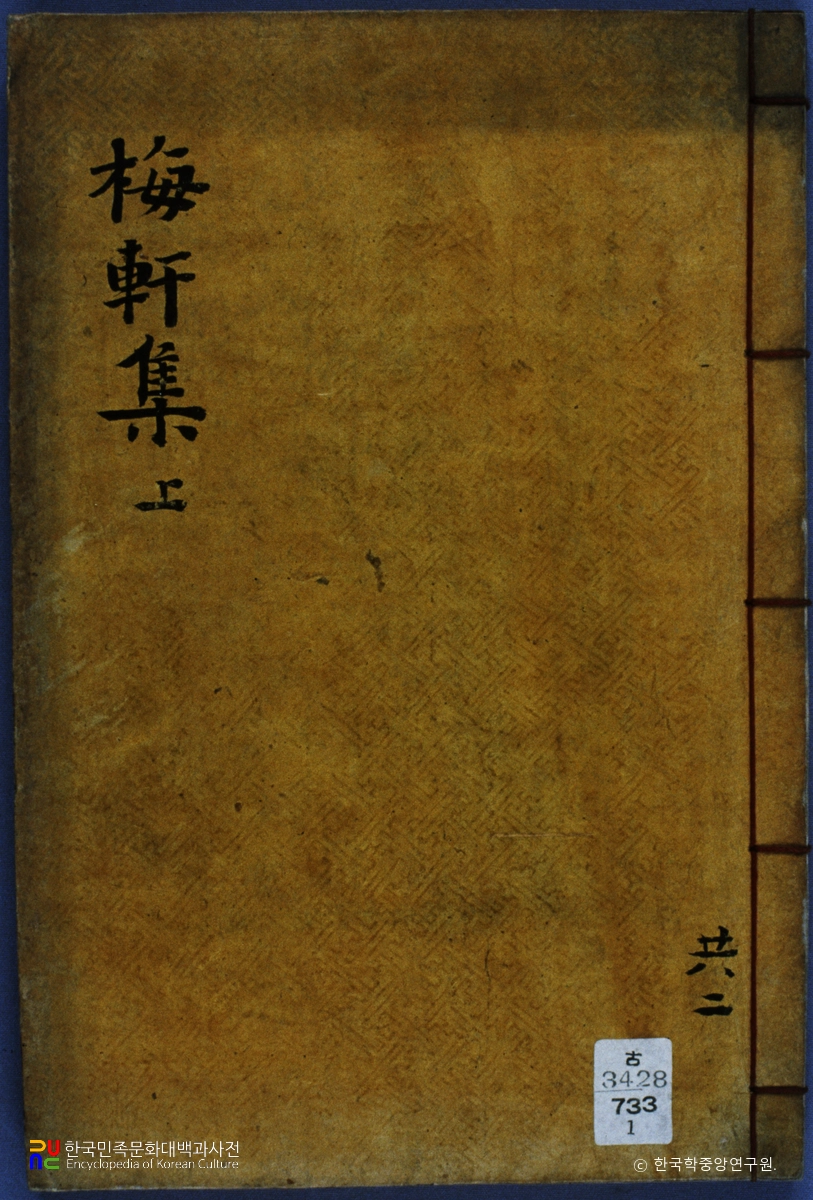 梅軒集 上
共二
古
3428
733
1
한국민족문화대백과사전
Encyclopedia of Korean Culture
© 한국학중앙연구원.